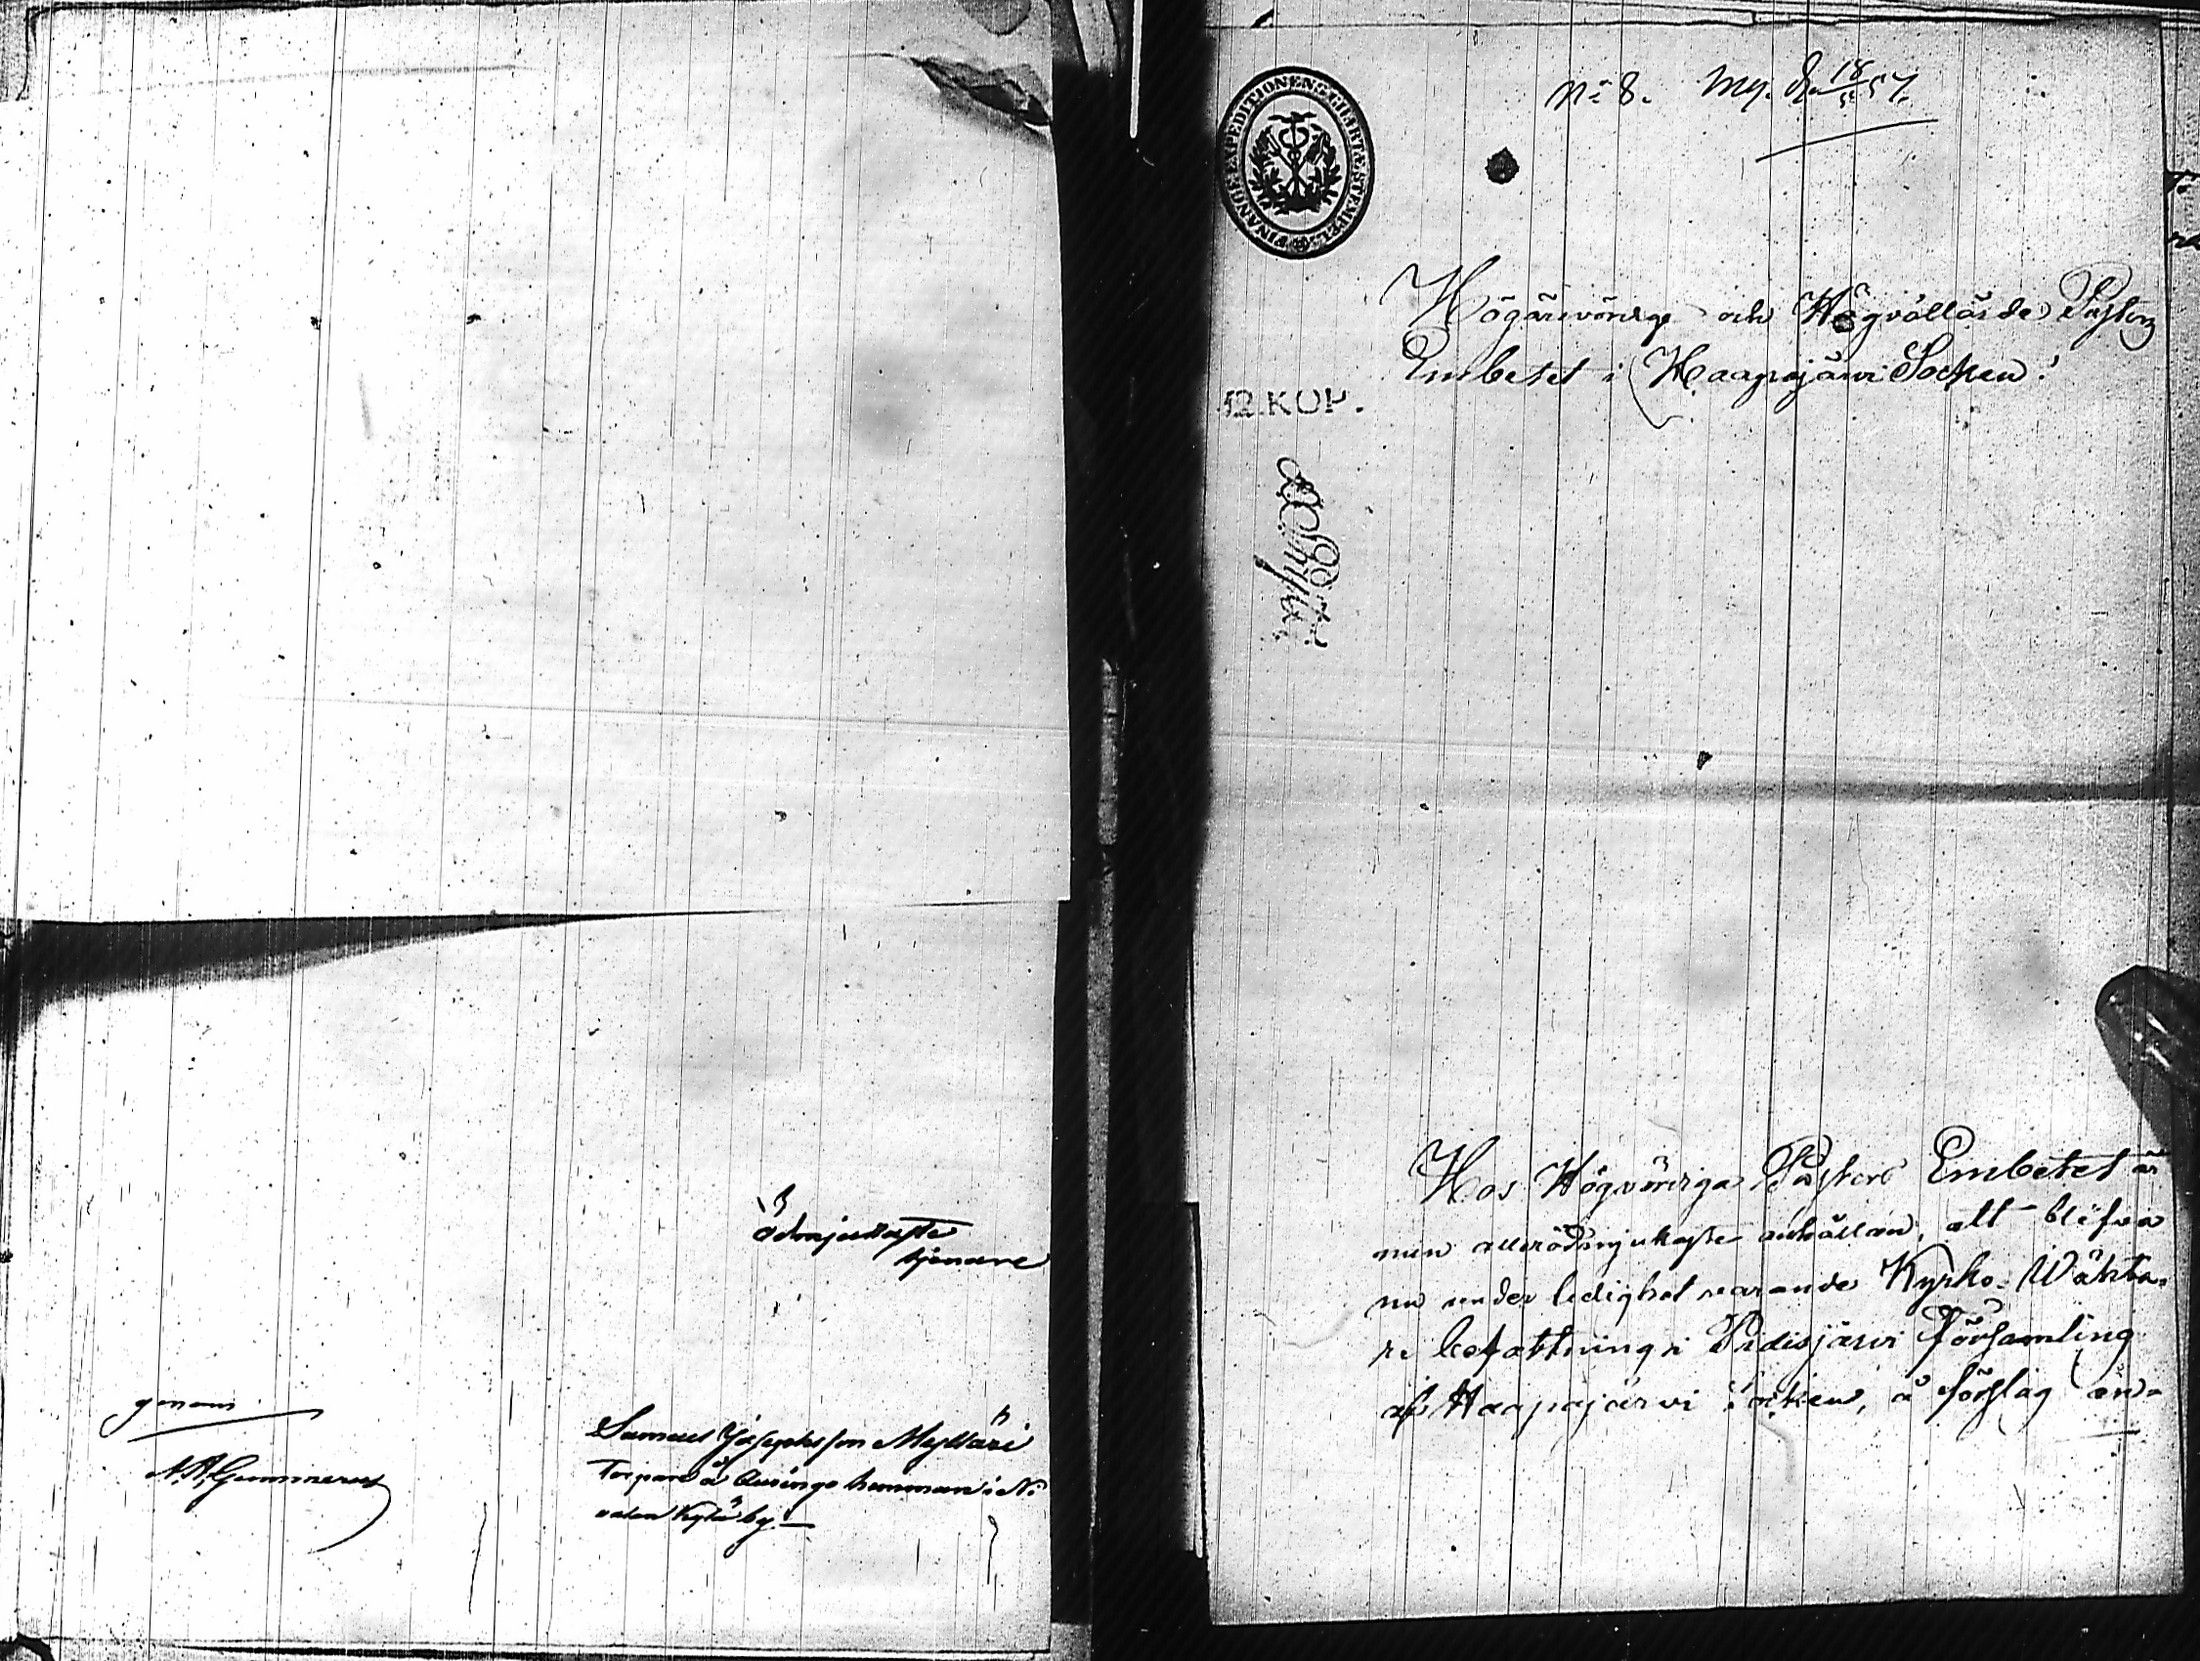 ödmjukaste
tjenare
genom
N. A. Gummerus
Samuel Josephsson Myllari
Torpare å hemman i Ni
Kylä by.
No 8.
FINANCE-EXPEDITIONENS CHARTÆ STEMPEL
Högärevördige och Högvällärde Pastors
Embetet i Haapajärvi Socken!
12. KOP.
Hos Högvördiga Pastors Embetet är
min allerödmjukaste anhållan, att blifva
nu under ledighet varande Kyrko-Wäkta-
re befattning i Pidisjärvi Församling
af Haapajärvi Socken, å förslag an-